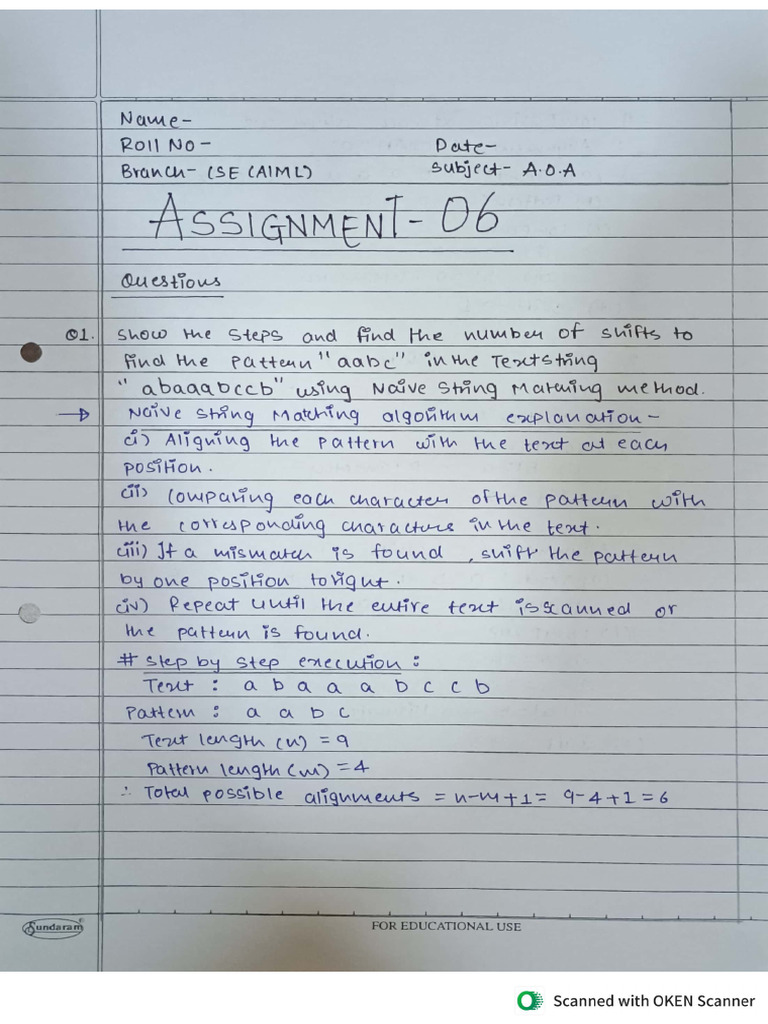 Name-
Roll No-
Date-
Branch- (SE (AIML)
Subject- A.O.A
ASSIGNMENT-06
Questions
Q1. Show the steps and find the number of shifts to
find the pattern "aabc" in the Text string
"abaaabccb" using Naive String Matching method.
→ Naive String Matching algorithm explanation-
(i) Aligning the pattern with the text at each
position.
(ii) Comparing each character of the pattern with
the corresponding characters in the text.
(iii) If a mismatch is found, shift the pattern
by one position to right.
(iv) Repeat until the entire text is scanned or
the pattern is found.
# Step by step execution :
Text : a b a a a b c c b
Pattern : a a b c
Text length (n) = 9
Pattern length (m) = 4
∴ Total possible alignments = n-m+1 = 9-4+1 = 6
Sundaram
FOR EDUCATIONAL USE
Scanned with OKEN Scanner